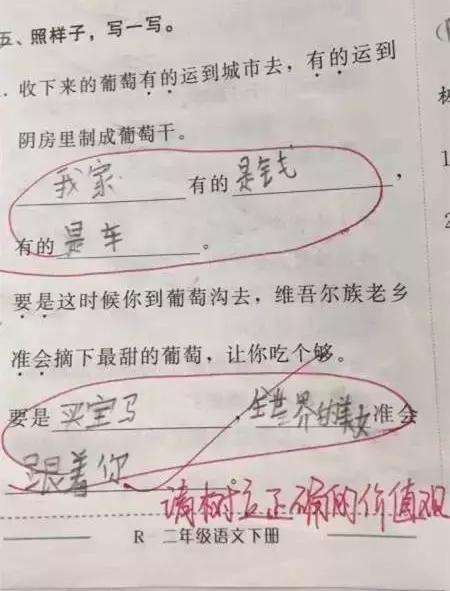 五、照样子，写一写。
. 收下来的葡萄有的运到城市去，有的运到
阴房里制成葡萄干。
我家 有的 是钱，
有的 是车。
要是这时候你到葡萄沟去，维吾尔族老乡
准会摘下最甜的葡萄，让你吃个够。
要是 买宝马，全世界的美女 准会
跟着你
请树立正确的价值观
R 二年级语文下册